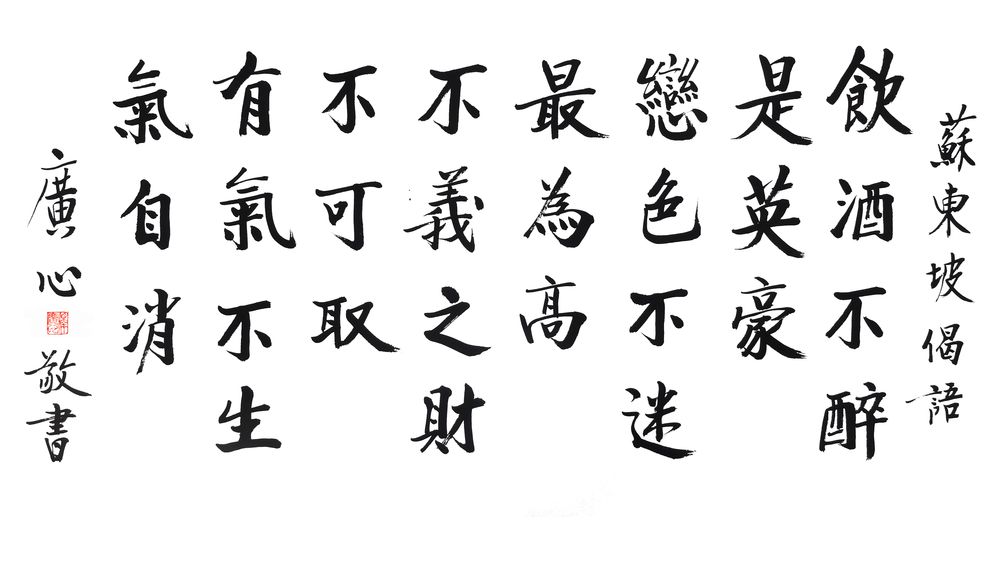 蘇東坡偈語
飲酒不醉
是英豪
戀色不迷
最為高
不義之財
不可取
有氣不生
氣自消
廣心
敬書